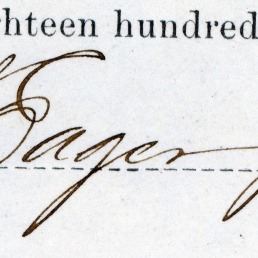 hteen hundred
Eager